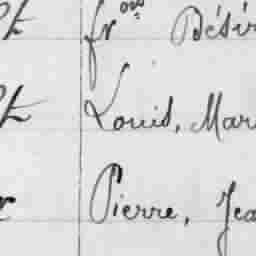 frois Désir
Louis, Mari
Pierre, Jea